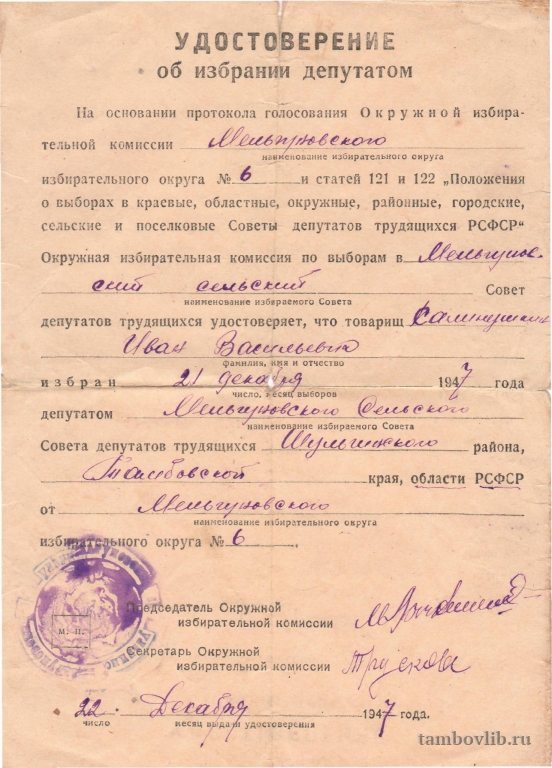 УДОСТОВЕРЕНИЕ
об избрании депутатом
На основании протокола голосования Окружной избира-
тельной комиссии Мельгуновского
наименование избирательного округа
избирательного округа № 6 и статей 121 и 122 „Положения
о выборах в краевые, областные, окружные, районные, городские,
сельские и поселковые Советы депутатов трудящихся РСФСР“
Окружная избирательная комиссия по выборам в Мельгунов-
ский сельский Совет
наименование избираемого Совета
депутатов трудящихся удостоверяет, что товарищ
Иван Васильевич
фамилия, имя и отчество
избран 21 декабря 1947 года
число, месяц выборов
депутатом Мельгуновского Сельского
наименование избираемого Совета
Совета депутатов трудящихся Шульгинского района,
Тамбовской края, области РСФСР
от Мельгуновского
наименование избирательного округа
избирательного округа № 6.
Председатель Окружной
избирательной комиссии
М. П.
Секретарь Окружной
избирательной комиссии Трускова
22 Декабря 1947 года.
число месяц выдачи удостоверения
tambovlib.ru